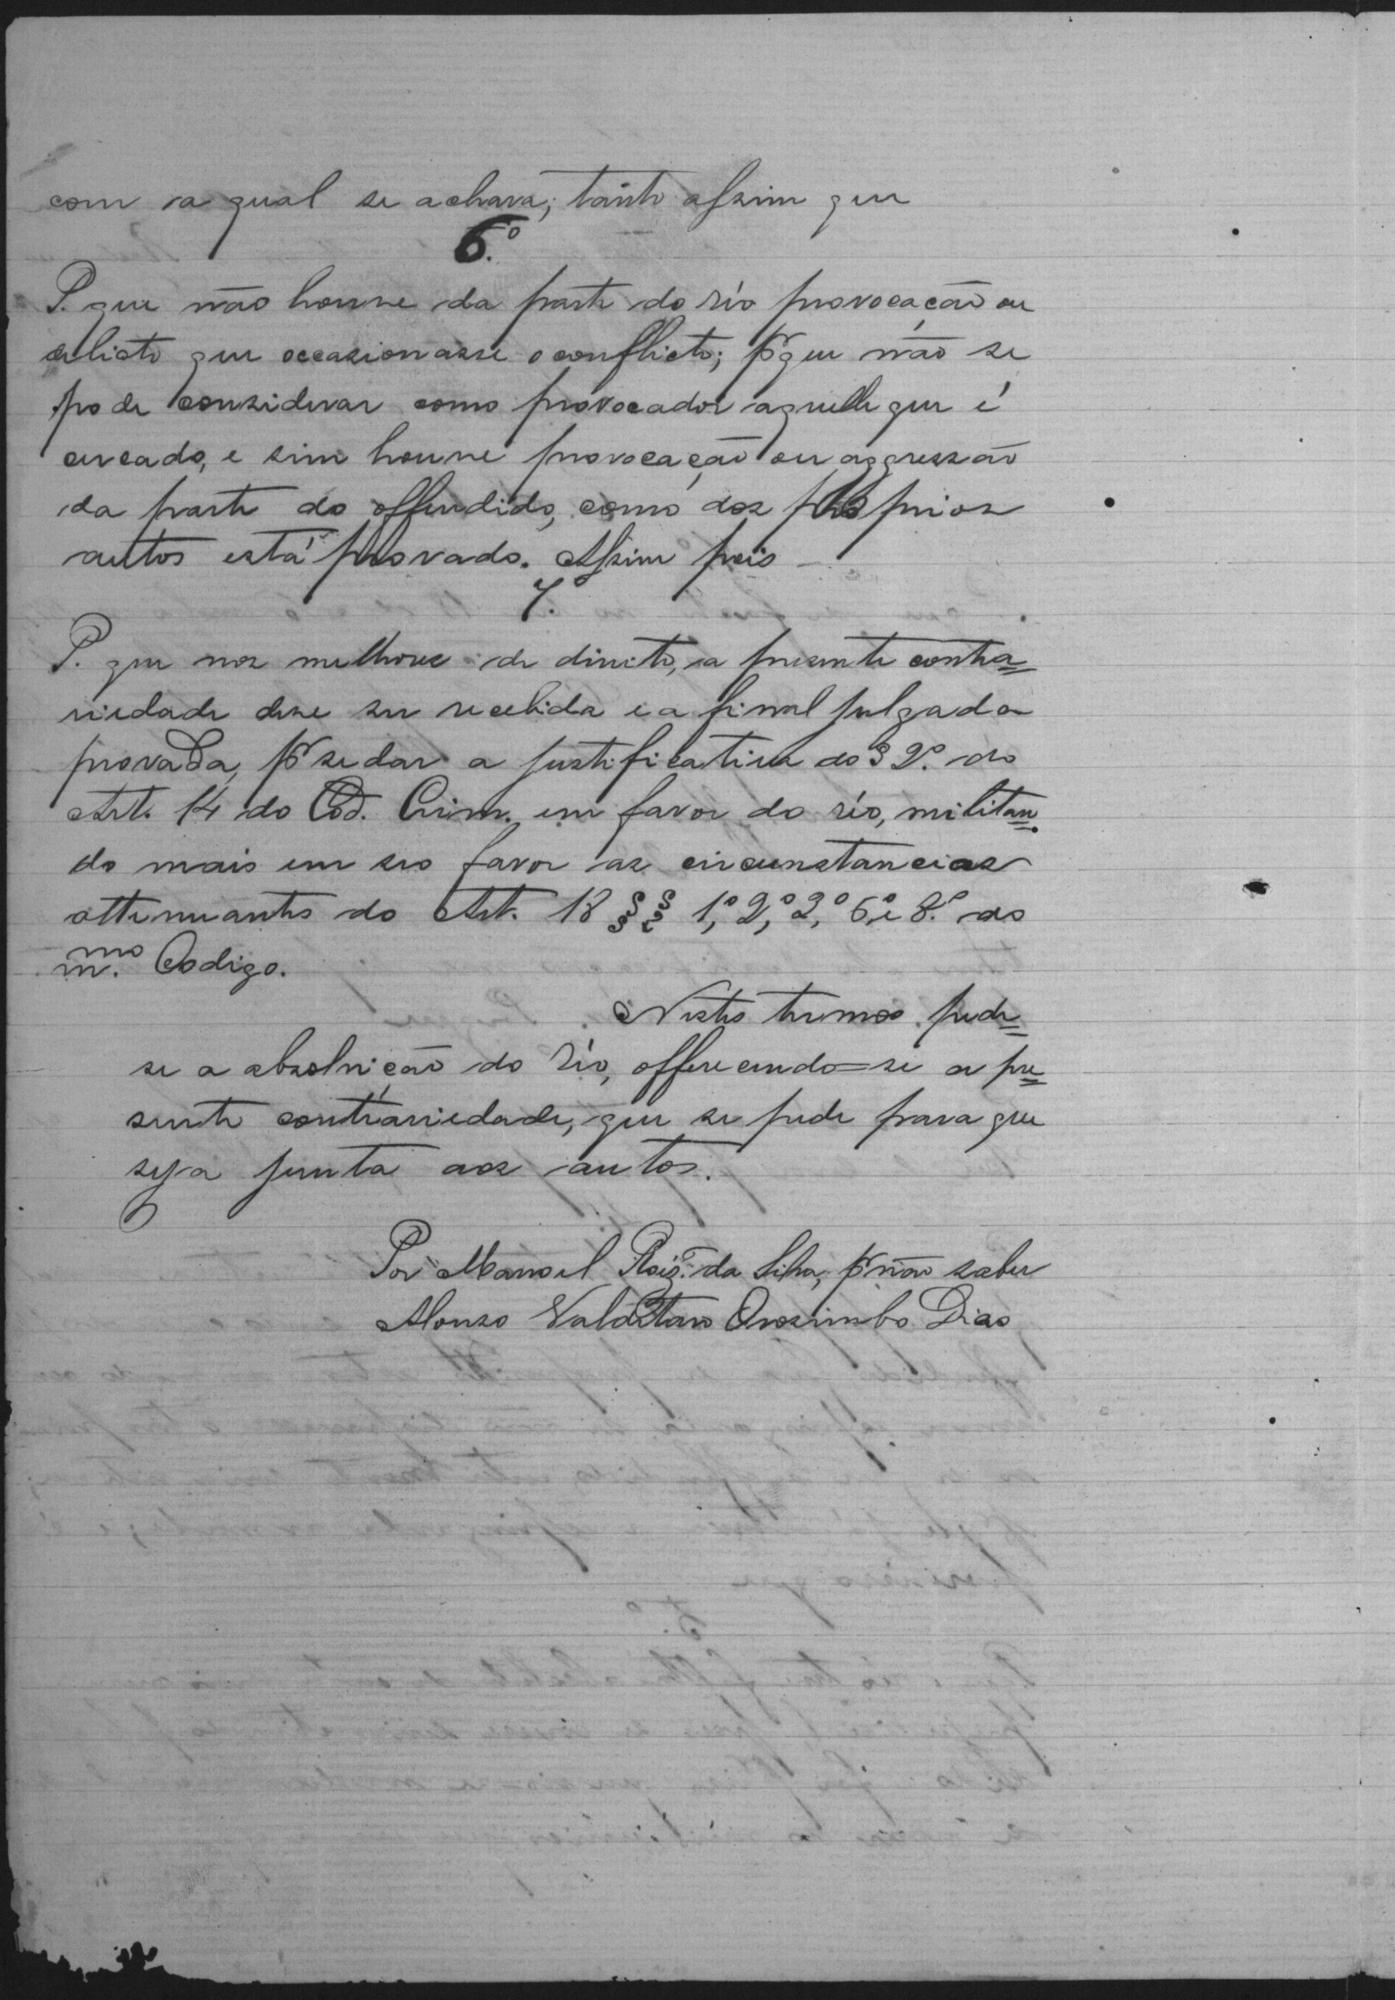 com a qual se achava; tanto assim que
6.º
P. que não houve da parte do réo provocação ou
delicto que occasionasse o conflicto; pr que não se
pode considerar como provocador aquelle que é
cercado, e sim houve provocação ou aggressão
da parte do offendido, como dos proprios
autos está provado. Assim pois
7.º
P. que nos melhores de direito, a presente contra=
riedade deve ser recebida e a final julgada
provada, pr se dar a justificativa do § 2º. do
Art. 14 do Cod. Crim. em favor do réo, militan=
do mais em seo favor as circunstancias
attenuantes do Art. 18 §§ 1º, 2º, 3º, 6º e 8.º do
mmo. Codigo.
Nestes termos pede=
se a absolvição do réo, offerecendo=se a pre=
sente contrariedade, que se pede para que
seja junta aos autos.
Por Manoel Roiz. da Silva, pr não saber
Alonso Valdetaro Orosimbo Dias